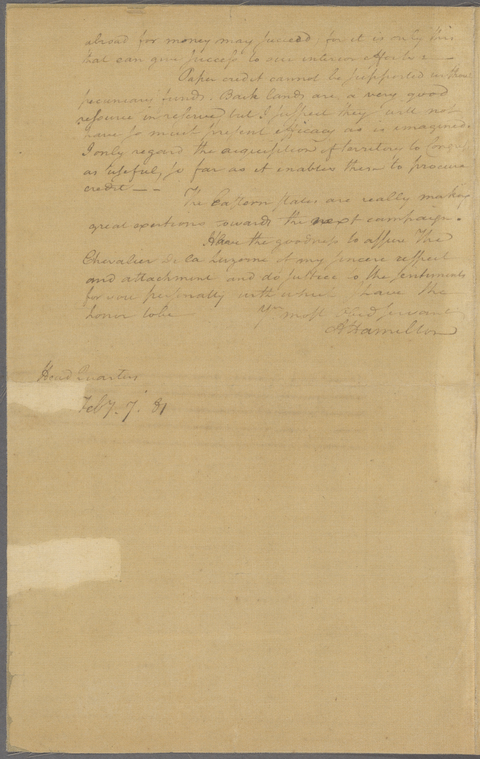 abroad for money may succeed, for it is only this
that can give success to our interior efforts. —
Paper credit cannot be supported without
pecuniary funds. Back lands are a very good
resource in reserve, but I suspect they will not
have so much present efficacy as is imagined
I only regard the acquisition of territory to Congress
as useful, so far as it enables them to procure
credit — —
The Eastern States are really making
great exertions towards the next campaign.
Have the goodness to assure The
Chevalier De la Luzerne of my sincere respect
and attachment and do justice to the sentiments
for you personally with which I have the
honor to be Yr most Obed servant
A Hamilton
Head Quarters
Feby. 7. 81